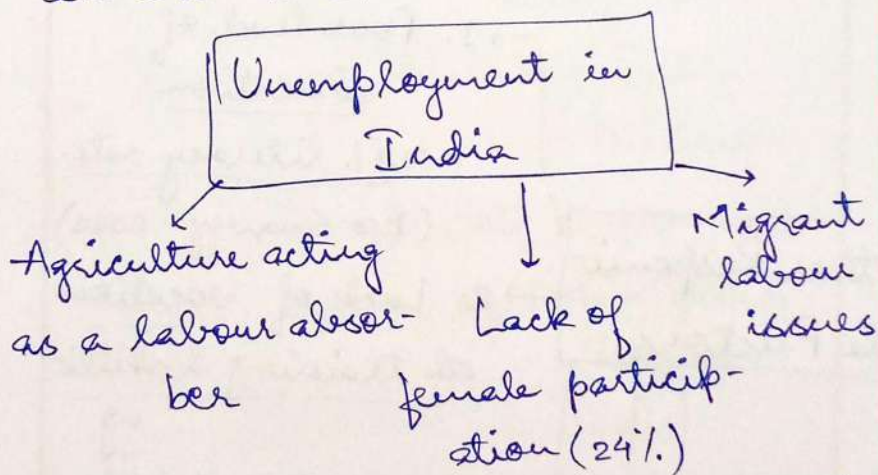 Unemployment in
India
Agriculture acting
as a labour absor-
ber
Lack of
female particip-
ation (24%.)
Migrant
labour
issues